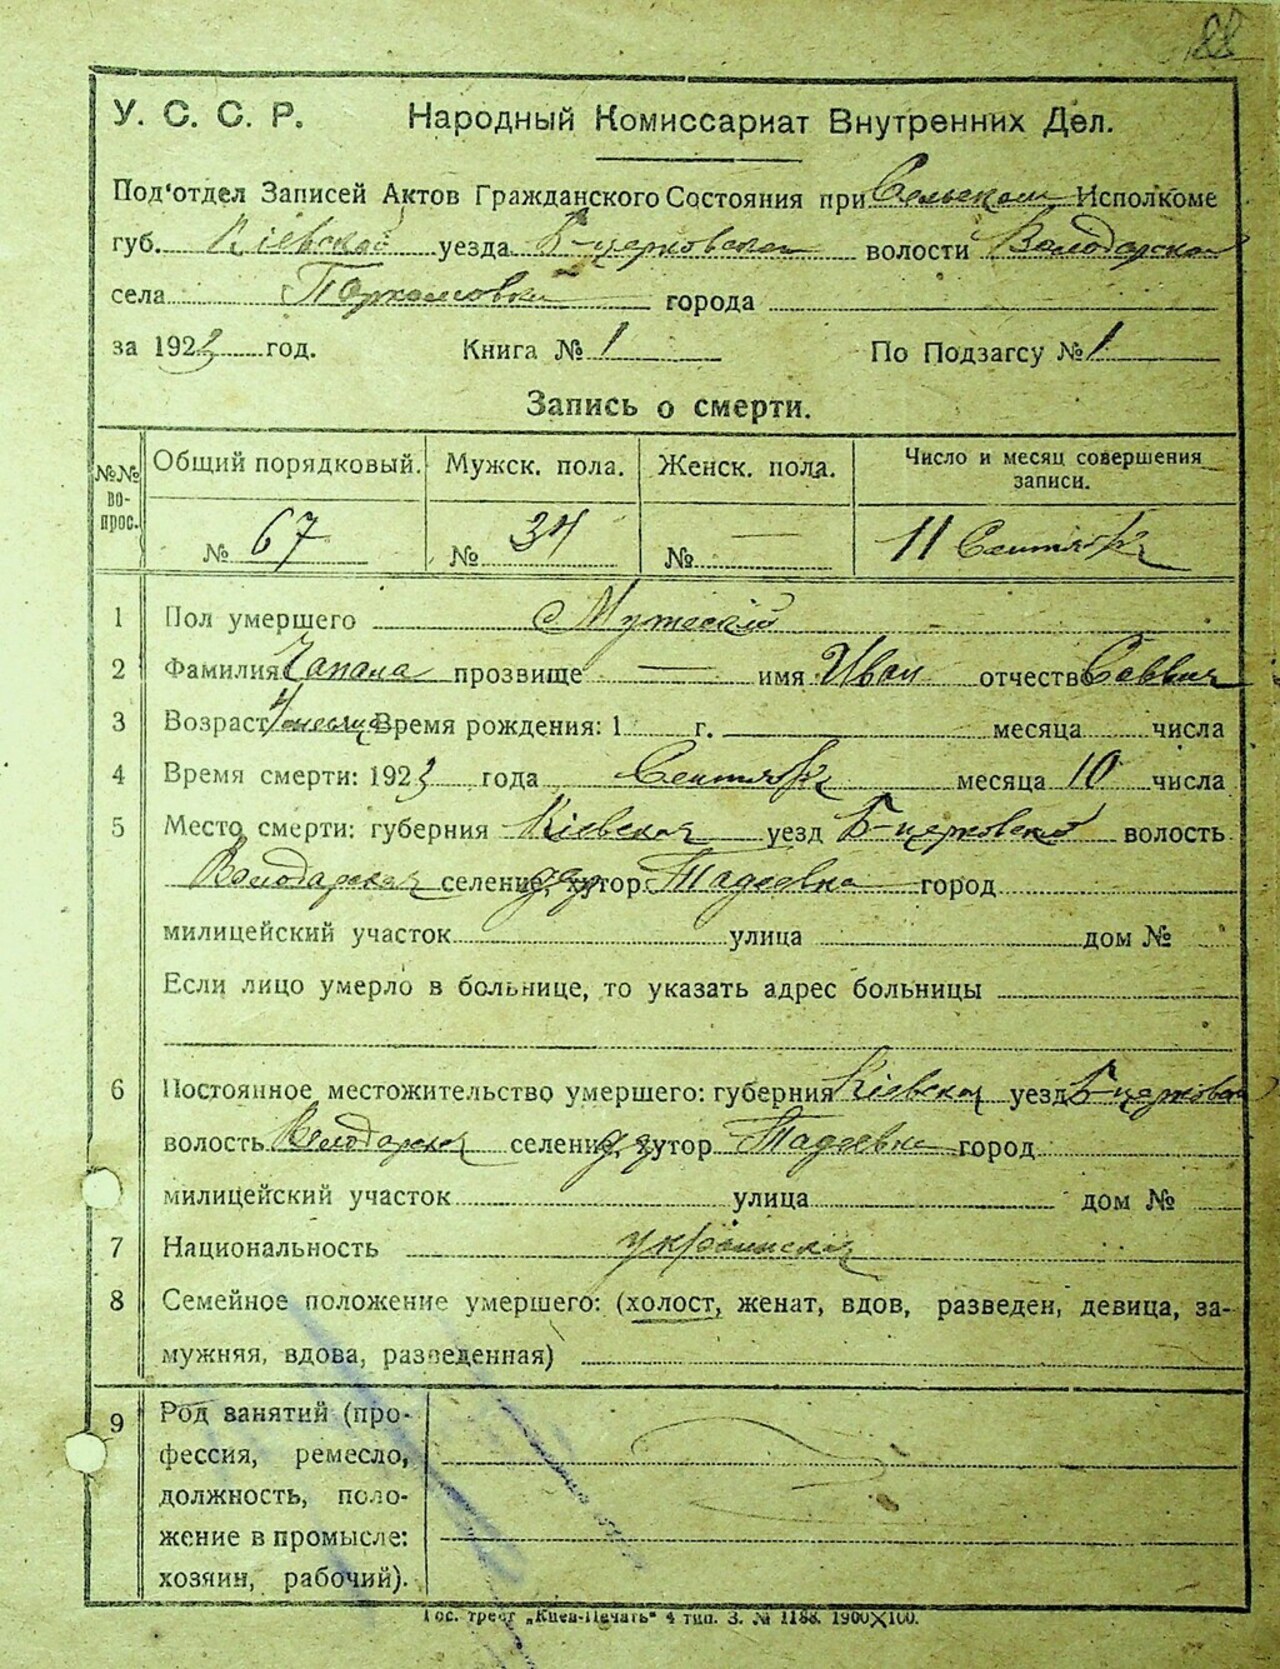 88
У. С. С. Р. Народный Комиссариат Внутренних Дел.
Под'отдел Записей Актов Гражданского Состояния при Сельском Исполкоме
губ. Кіевской уезда Б-церковского волости Володарской
села города
за 1923 год. Книга № 1 По Подзагсу № 1
Запись о смерти.
№№ вопрос. Общий порядковый. Мужск. пола. Женск. пола. Число и месяц совершения записи.
№ 67 № 34 № — 11 Сентября
1 Пол умершего Мужеский
2 Фамилия Чапала прозвище — имя Иван отчество Саввич
3 Возраст 4 месяца Время рождения: 1 г. месяца числа
4 Время смерти: 1923 года Сентября месяца 10 числа
5 Место смерти: губерния Кіевская уезд Б-церковский волость
Володарская селение, хутор дер Тадеевка город
милицейский участок улица дом №
Если лицо умерло в больнице, то указать адрес больницы
6 Постоянное местожительство умершего: губерния Кіевская уезд Б-церковский
волость Володарская селение, хутор Тадеевка город
милицейский участок улица дом №
7 Национальность украинская
8 Семейное положение умершего: (холост, женат, вдов, разведен, девица, за-
мужняя, вдова, разведенная)
9 Род занятий (про-
фессия, ремесло,
должность, поло-
жение в промысле:
хозяин, рабочий).
Гос. трест „Киев-Печать" 4 тип. З. № 1188. 1900×100.